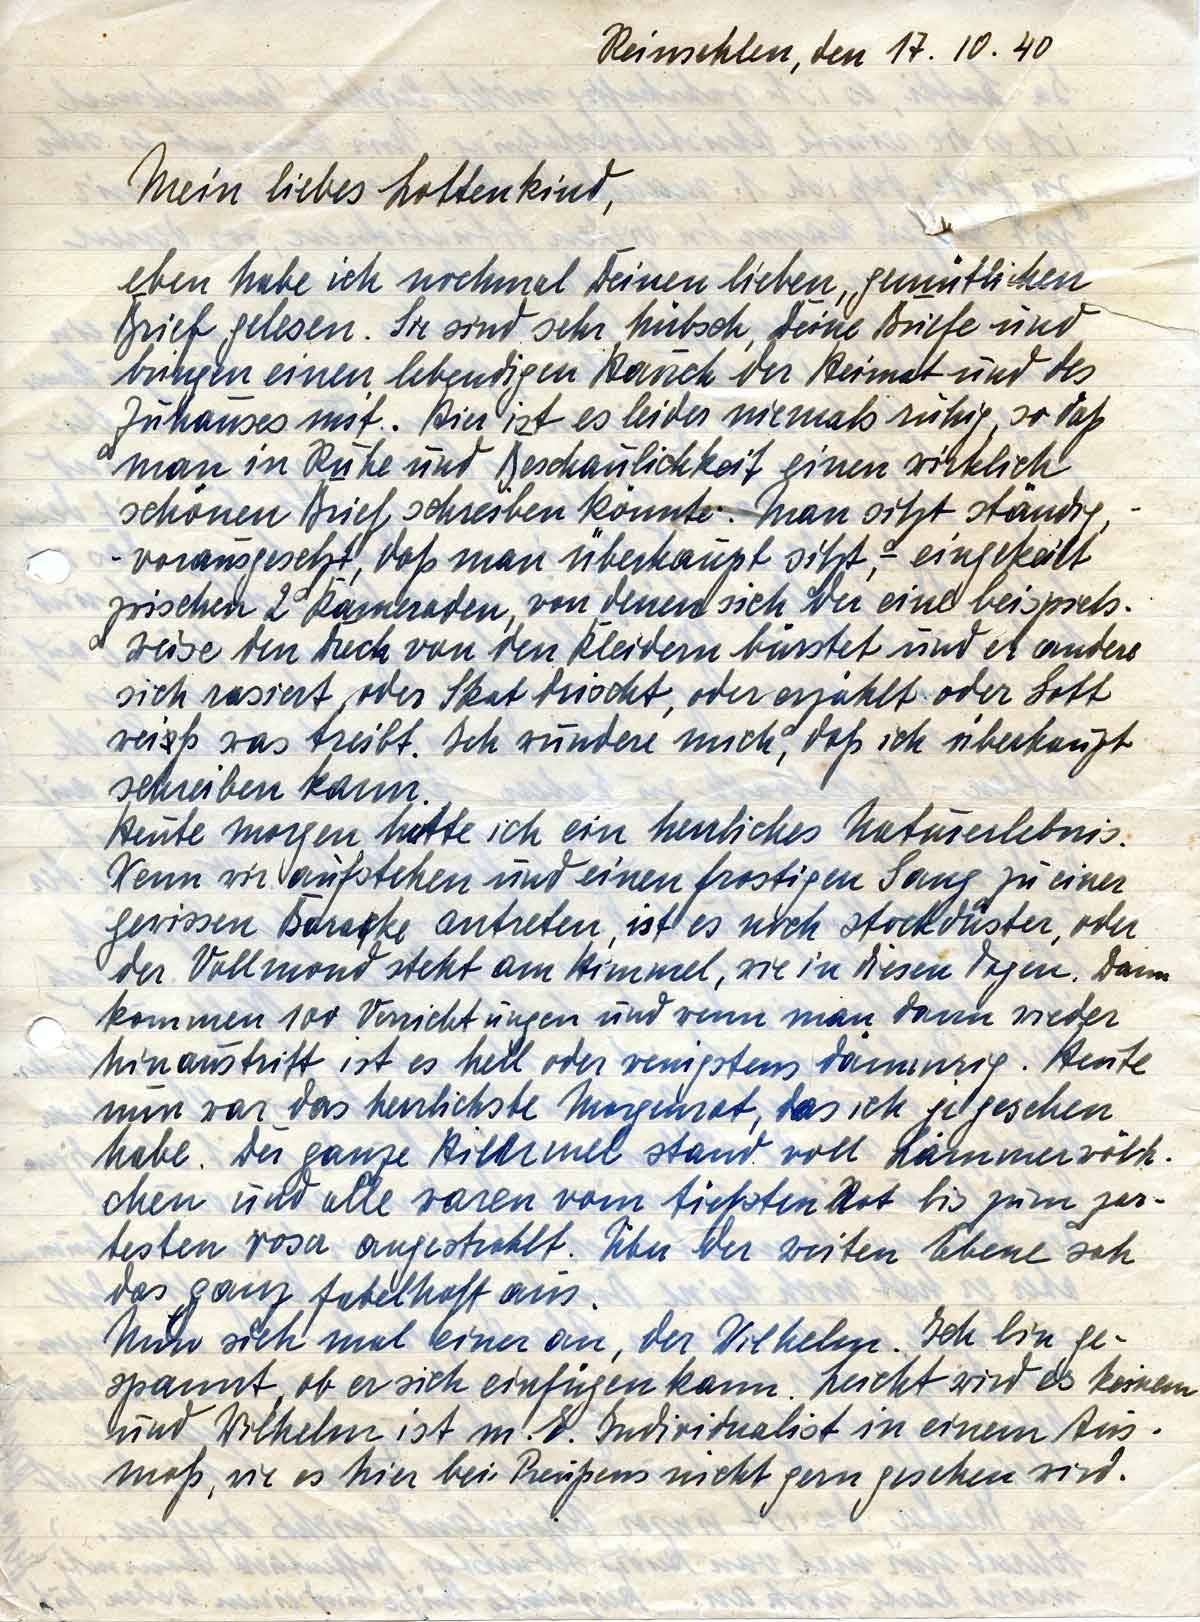 Reinsehlen, den 17. 10. 40
Mein liebes Lottenkind,
eben habe ich nochmal Deinen lieben, gemütlichen
Brief gelesen. Sie sind sehr hübsch, Deine Briefe und
bringen einen lebendigen Hauch der Heimat und des
Zuhauses mit. Hier ist es leider niemals ruhig, so daß
man in Ruhe und Beschaulichkeit einen wirklich
schönen Brief schreiben könnte. Man sitzt ständig, -
- vorausgesetzt, daß man überhaupt sitzt, - eingekeilt
zwischen 2 Kameraden, von denen sich der eine beispiels-
weise den Dreck von den Kleidern bürstet und er andere
sich rasiert, oder Skat drischt, oder erzählt oder Gott
weiß was treibt. Ich wundere mich, daß ich überhaupt
schreiben kann.
Heute morgen hatte ich ein herrliches Naturerlebnis.
Wenn wir aufstehen und einen frostigen Gang zu einer
gewissen Baracke antreten, ist es noch stockdüster, oder
der Vollmond steht am Himmel, wie in diesen Tagen. Dann
kommen 100 Verrichtungen und wenn man dann wieder
hinaustritt ist es hell oder wenigstens dämmrig. Heute
nun war das herrlichste Morgenrot, das ich je gesehen
habe. Der ganze Himmel stand voll Lämmerwölk-
chen und alle waren vom tiefsten Rot bis zum zar-
testen rosa angestrahlt. Über der weiten Ebene sah
das ganz fabelhaft aus.
Nun sieh mal einer an, der Wilhelm. Ich bin ge-
spannt, ob er sich einfügen kann. Leicht wird es keinem
und Wilhelm ist m. E. Individualist in einem Aus-
maß, wie es hier bei Preußens nicht gern gesehen wird.